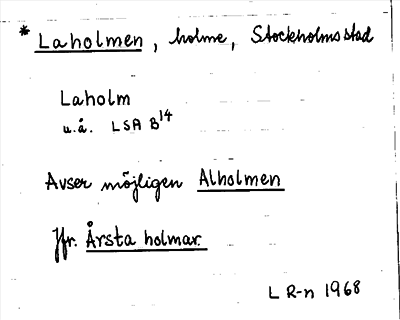 * Laholmen, holme, Stockholms stad
Laholm
u.å. LSA B14
Avser möjligen Alholmen
Jfr. Årsta holmar.
L R-n 1968